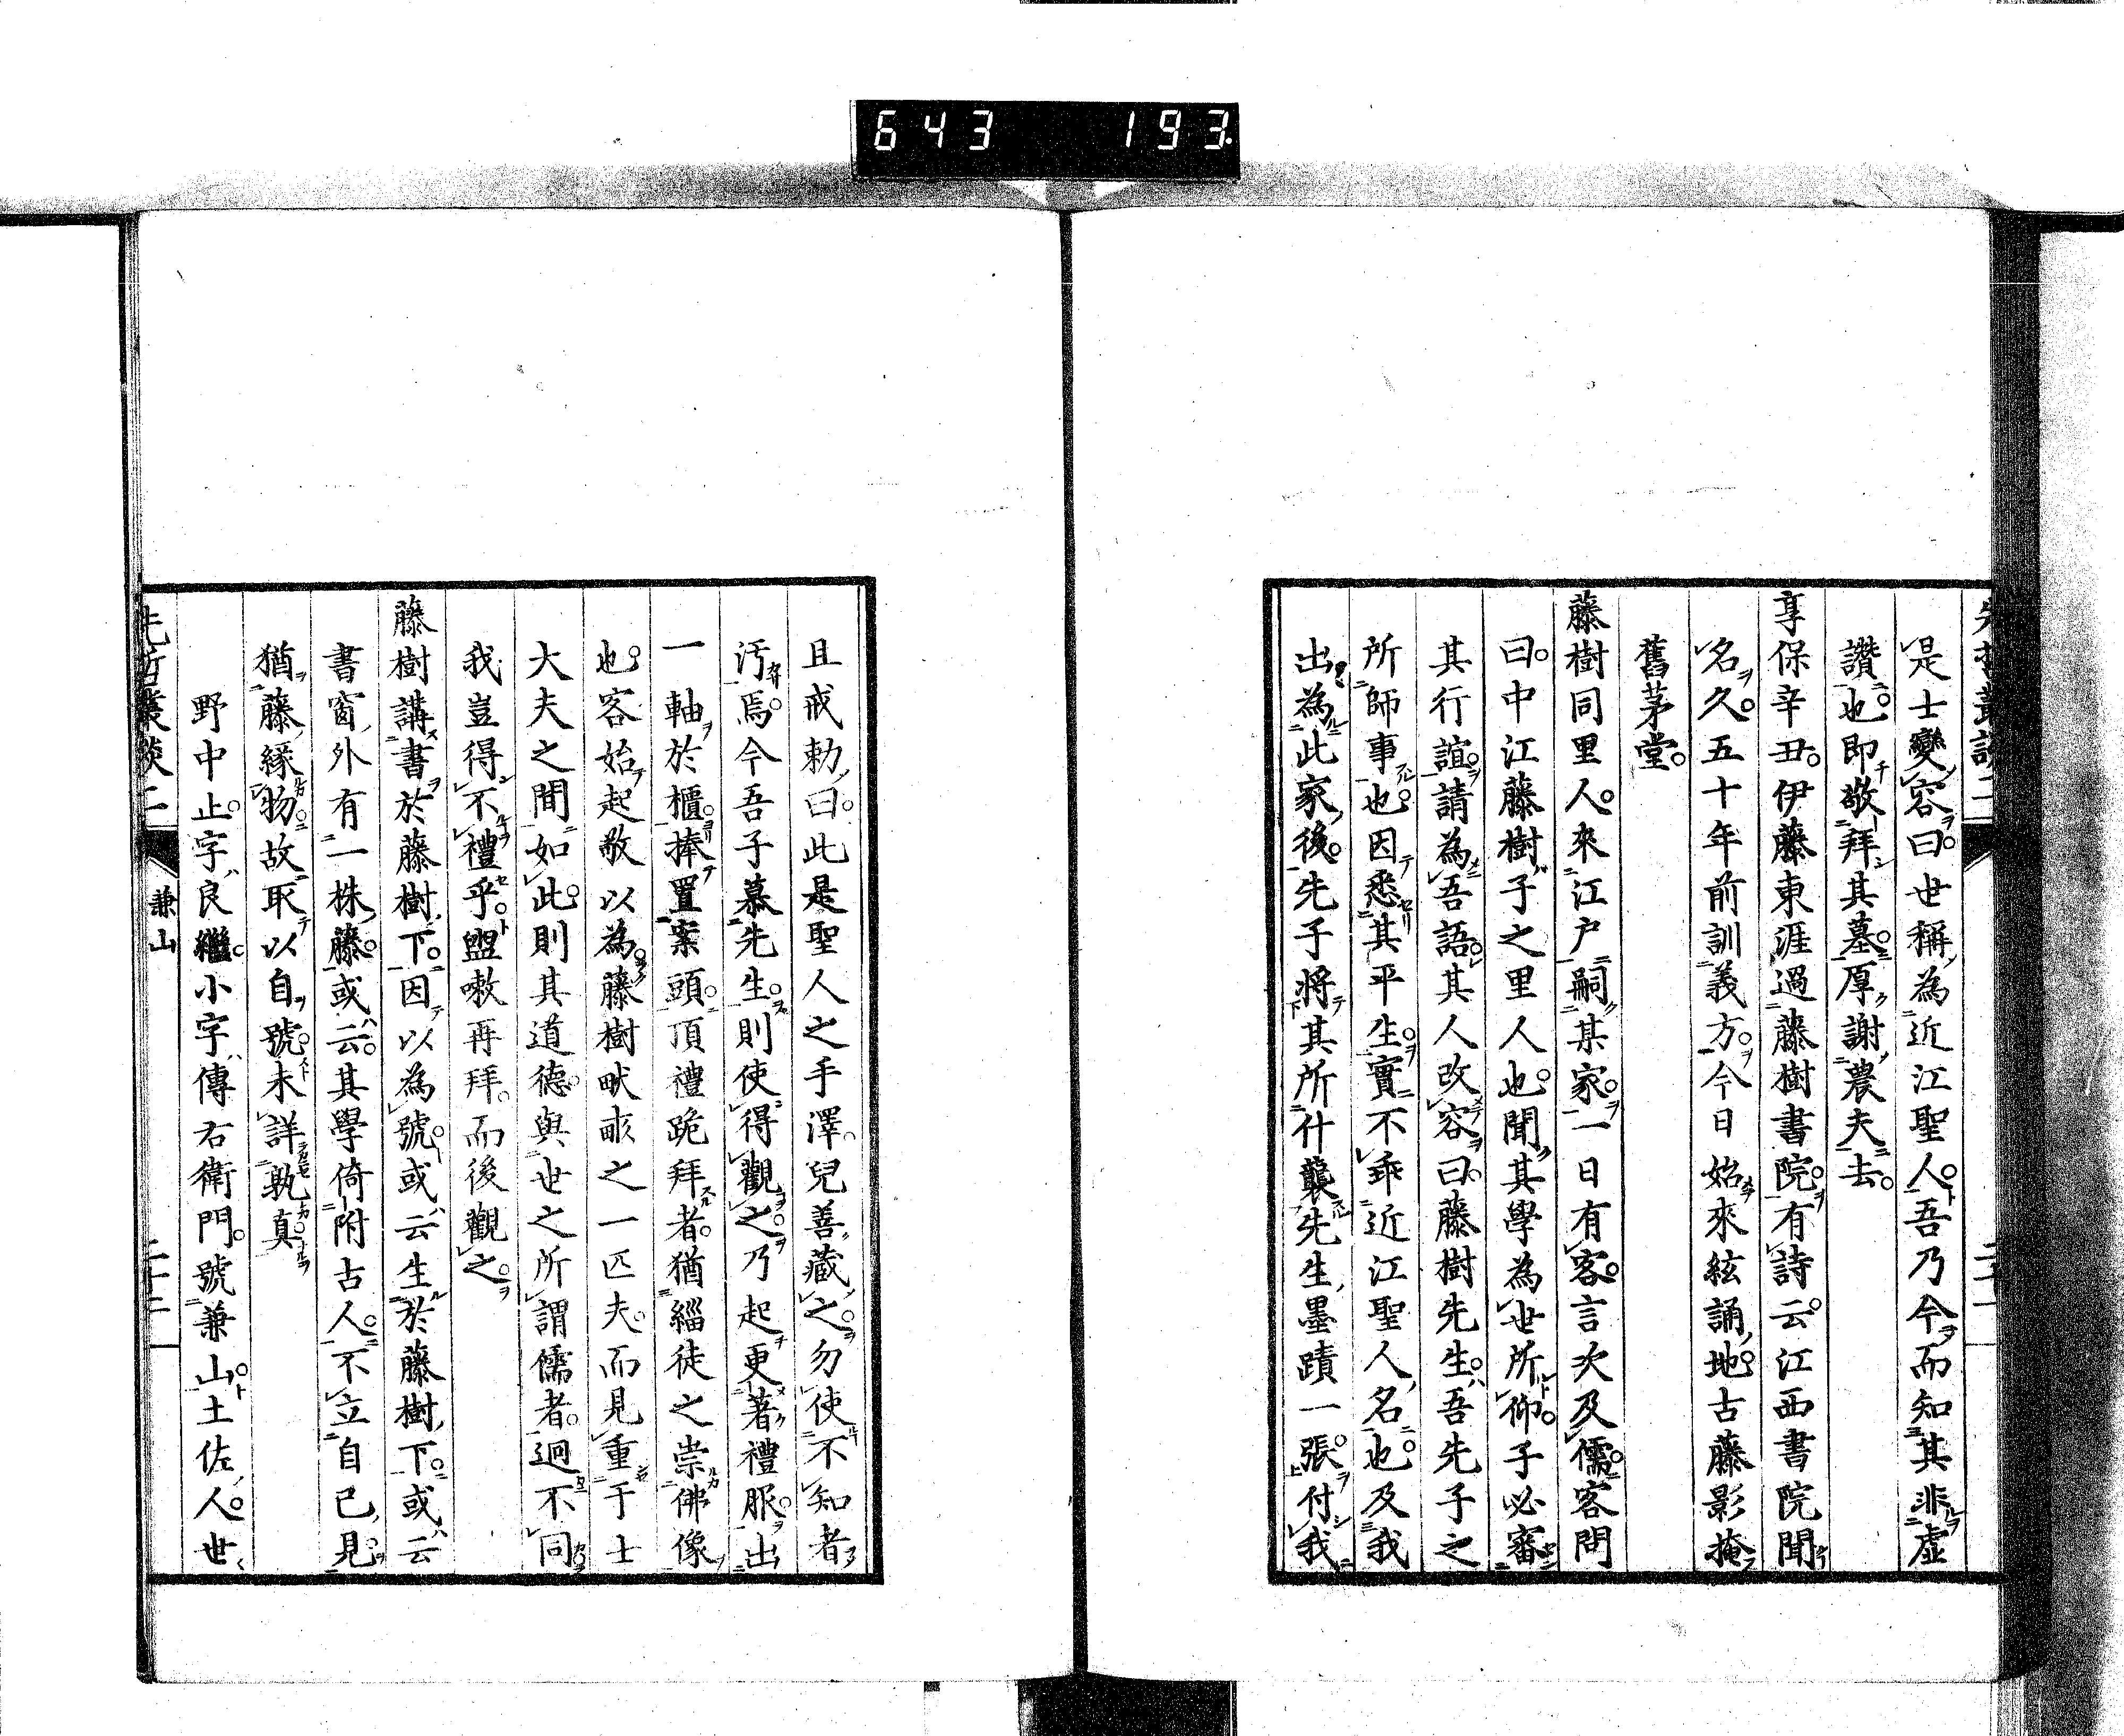 643 193
先哲叢談二
是士變容曰世稱為近江聖人吾乃今而知其非虛
讚也即敬拜其墓厚謝農夫去
享保辛丑伊藤東涯過藤樹書院有詩云江西書院聞
名久五十年前訓義方今日始來絃誦地古藤影掩
舊茅堂
藤樹同里人來江戸嗣某家一日有客言次及儒客問
曰中江藤樹子之里人也聞其學為世所仰子必審
其行誼請為吾語其人改容曰藤樹先生吾先子之
所師事也因悉其平生實不乖近江聖人名也及我
出為此家後先子將其所什襲先生墨蹟一張付我
且戒勅曰此是聖人之手澤兒善藏之勿使不知者
汚焉今吾子慕先生則使得觀之乃起更著禮服出
一軸於櫃捧置案頭頂禮跪拜者猶緇徒之崇佛像
也客始起敬以為藤樹畎畝之一匹夫而見重于士
大夫之間如此則其道德與世之所謂儒者迥不同
我豈得不禮乎盥嗽再拜而後觀之
藤樹講書於藤樹下因以為號或云生於藤樹下或云
書窗外有一株藤或云其學倚附古人不立自己見
猶藤緣物故取以自號未詳孰真
野中止字良繼小字傳右衛門號兼山土佐人世
先哲叢談二
兼山
二十二